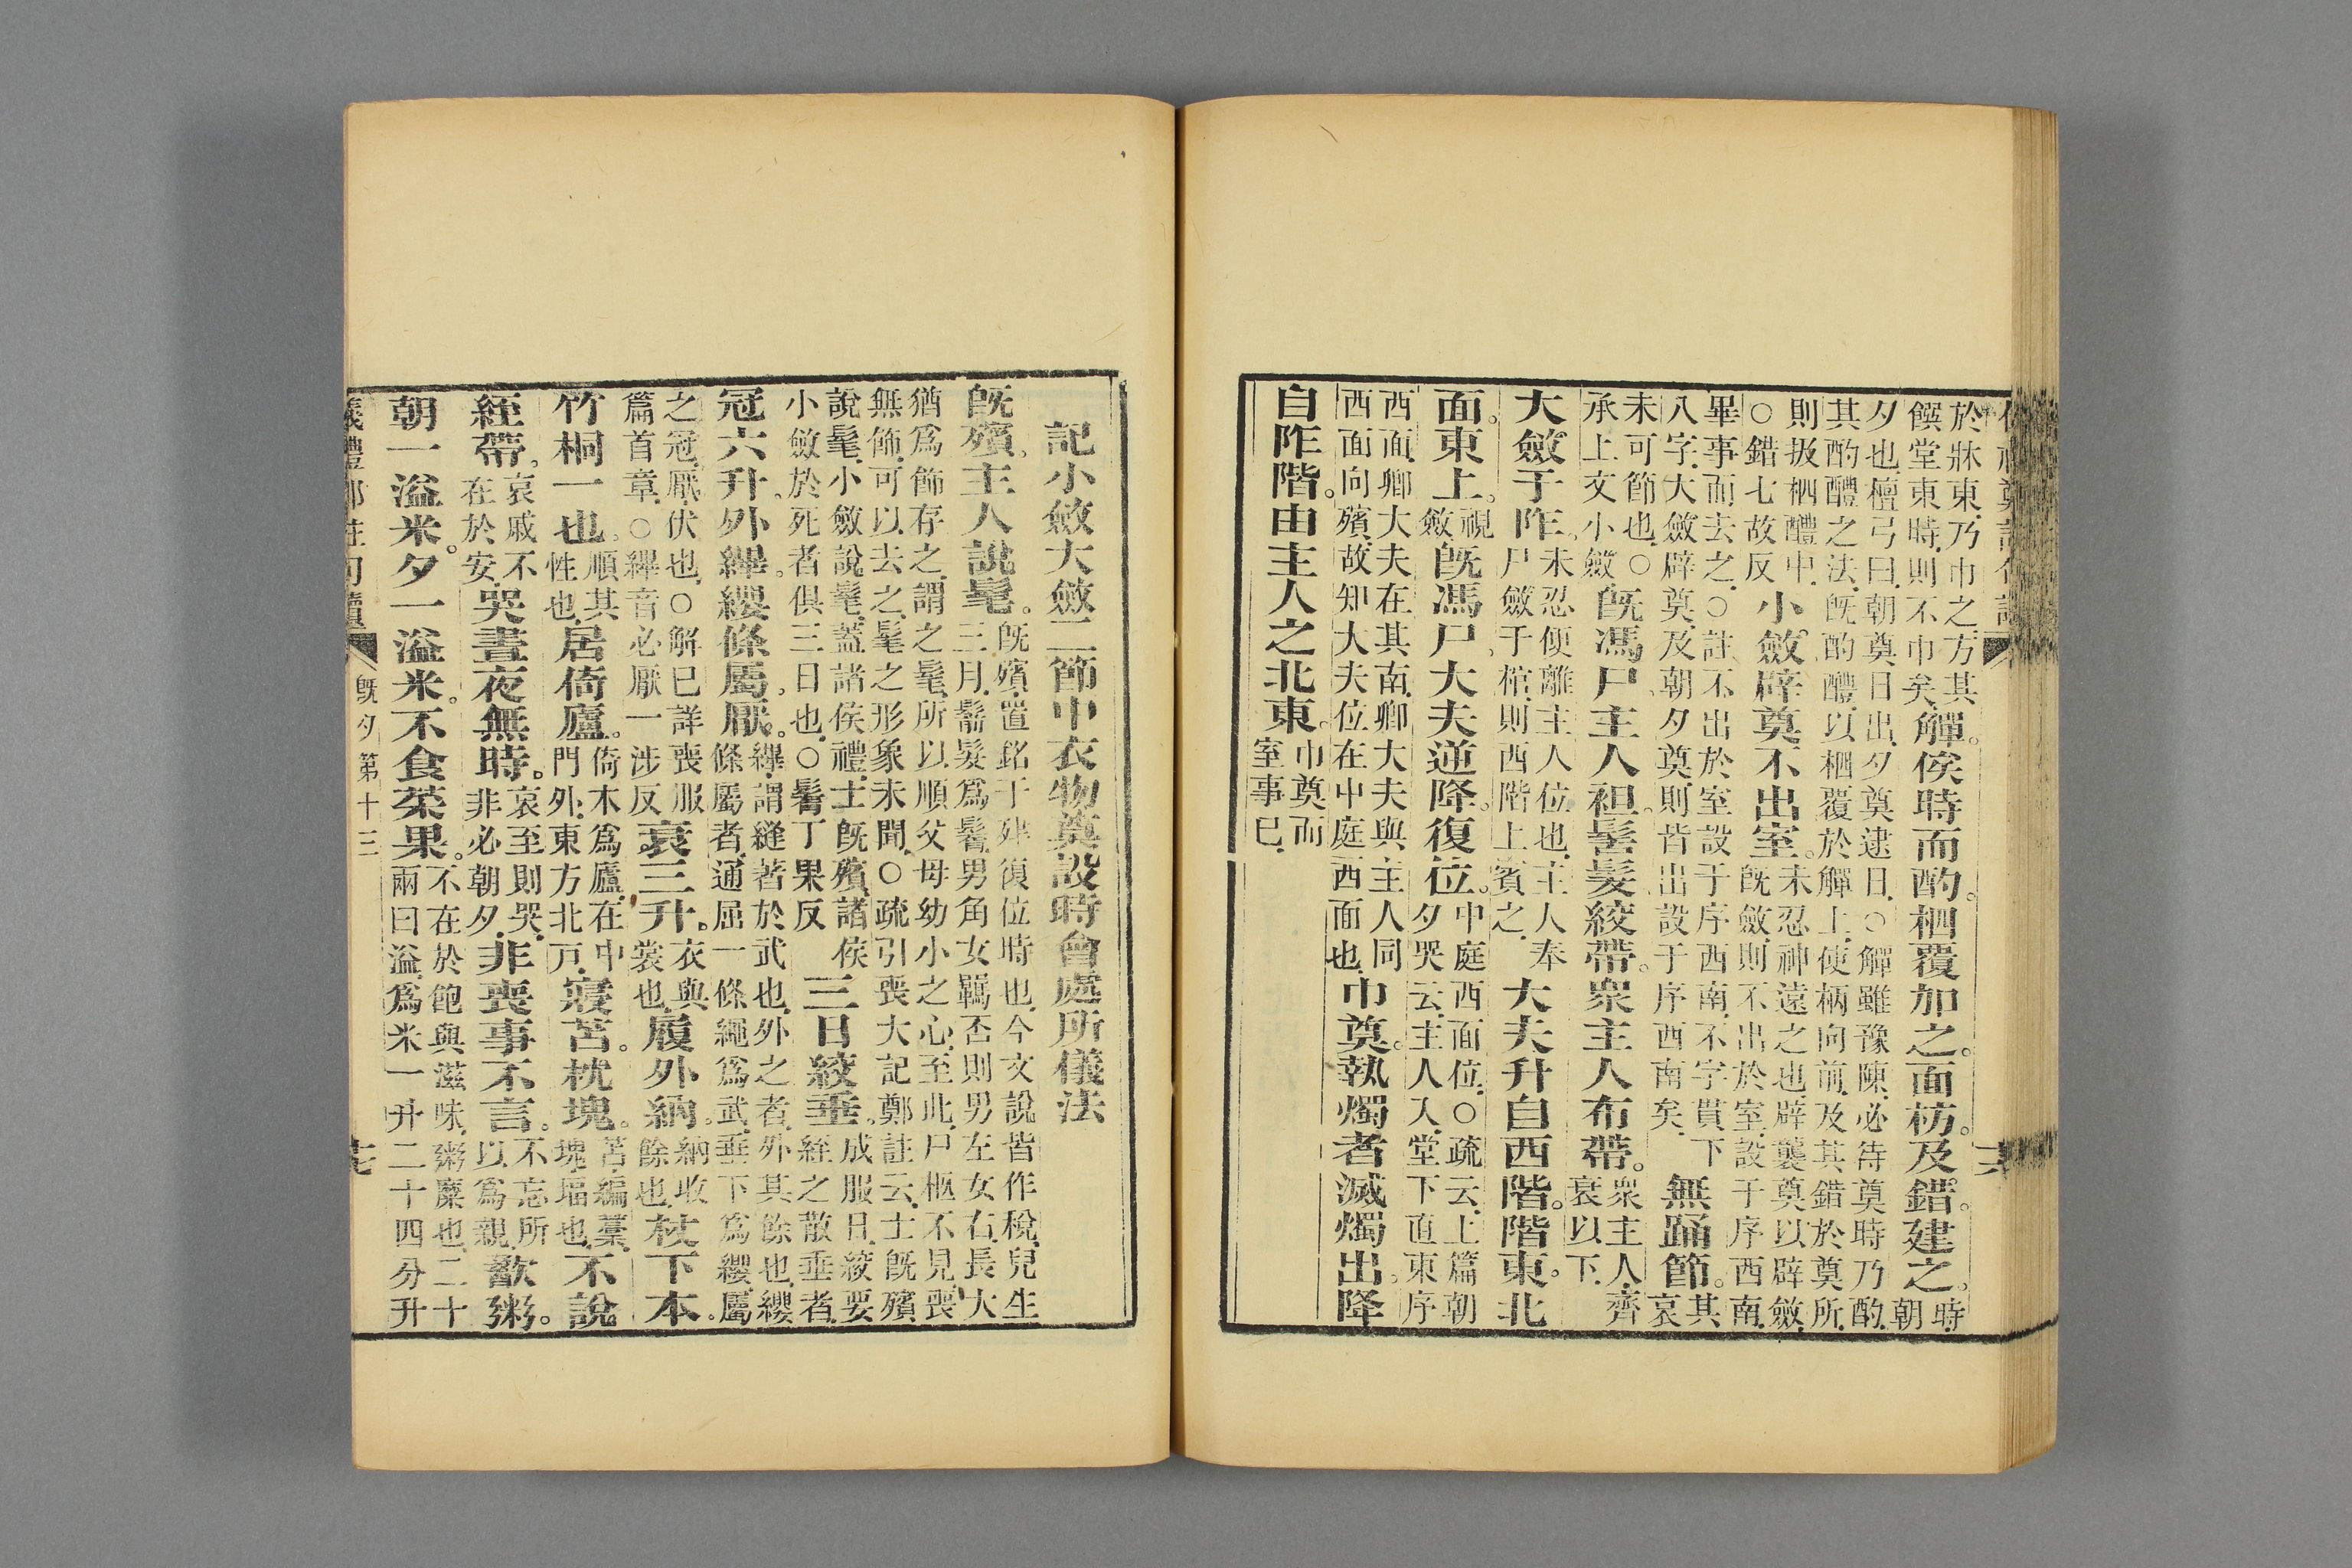 於牀東乃巾之方其饌堂東時則不巾矣觶。俟時而酌。柶覆加之。面枋。及錯。建之。時朝
夕也檀弓曰朝奠日出夕奠逮日○觶雖豫陳必待奠時乃酌其酌醴之法旣酌醴以柶覆於觶上使柄向前及其錯於奠所
則扱柶醴中○錯七故反小斂辟奠不出室。未忍神遠之也辟襲奠以辟斂旣斂則不出於室設于序西南
畢事而去之○註不出於室設于序西南不字貫下八字大斂辟奠及朝夕奠則皆出設于序西南矣無踊節。其哀
未可節也○承上文小斂旣馮尸主人袒。髺髮絞帶。衆主人布帶。衆主人齊衰以下
大斂于阼。未忍便離主人位也主人奉尸斂于棺則西階上賓之大夫升自西階。階東。北
面。東上。視斂旣馮尸大夫逆降。復位。中庭西面位○疏云上篇朝夕哭云主人入堂下直東序
西面卿大夫在其南卿大夫與主人同西面向殯故知大夫位在中庭西面也巾奠。執燭者滅燭出。降
自阼階。由主人之北東。巾奠而室事已
記小斂大斂二節中衣物奠設時會處所儀法
旣殯。主人說髦。旣殯置銘于肂復位時也今文說皆作稅兒生三月鬋髮爲鬌男角女羈否則男左女右長大
猶爲飾存之謂之髦所以順父母幼小之心至此尸柩不見喪無飾可以去之髦之形象未聞○疏引喪大記鄭註云士旣殯
說髦小斂說髦蓋諸侯禮士旣殯諸侯小斂於死者俱三日也○鬌丁果反三日絞垂。成服日絞要絰之散垂者
冠六升。外縪。纓條屬。厭。縪謂縫著於武也外之者外其餘也纓條屬者通屈一條繩爲武垂下爲纓屬
之冠厭伏也○解已詳喪服篇首章○縪音必厭一涉反衰三升。衣與裳也屨外納。納收餘也杖下本。
竹桐一也。順其性也居倚廬。倚木爲廬在中門外東方北戶寢苫。枕塊。苫編藁塊堛也不說
絰帶。哀戚不在於安哭晝夜無時。哀至則哭非必朝夕非喪事不言。不忘所以爲親歠粥。
朝一溢米。夕一溢米。不食菜果。不在於飽與滋味粥糜也二十兩曰溢爲米一升二十四分升
儀禮鄭註句讀 旣夕第十三 十七